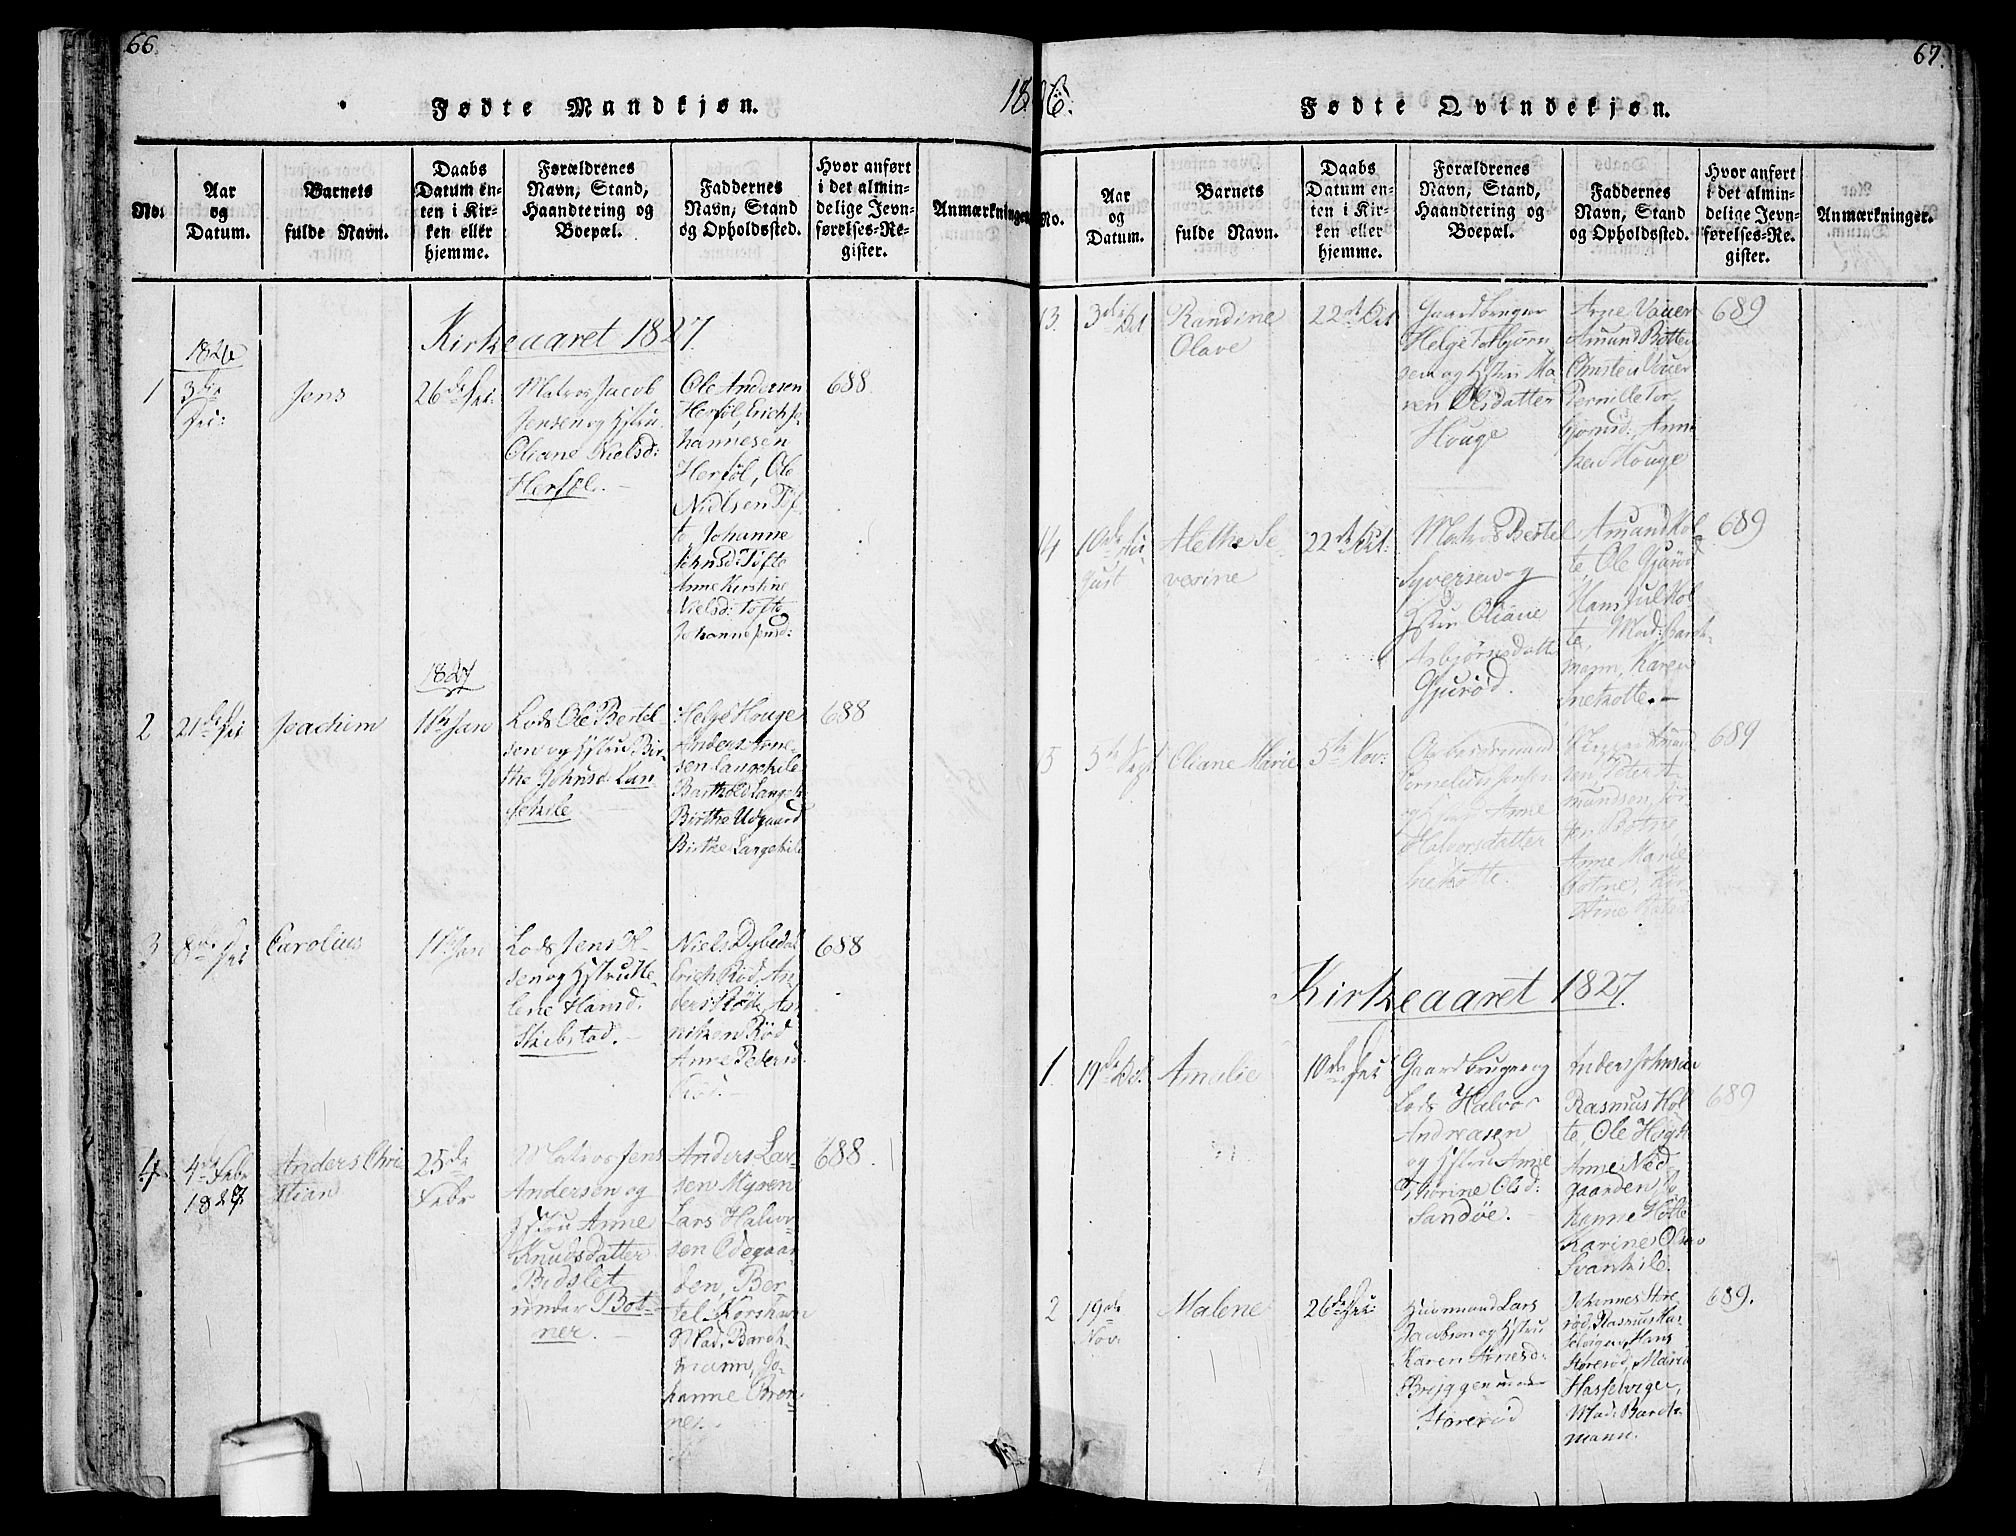 66.
Fødte Mandkjøn.
No.
Aar
og
Datum.
Barnets
fulde Navn.
Daabs
Datum en-
ten i Kir-
ken eller
hjemme.
Forældrenes
Navn, Stand,
Haandtering og
Boepæl.
Faddernes
Navn, Stand
og Opholdssted.
Hvor anført
i det almin-
delige Jevn-
førelses-Re-
gister.
Anmærkninger
Kirkeaaret 1827.
1826
1
3die
Jens
26de
Matros Jacob
Jensen og Hstru
Oliane Nielsd:
Herføl.
Ole Andersen
Herføl, Erich Jo-
hannesen
Herføl, Ole
Nielsen Tof-
te, Johanne
Johnsd: Tofte
Anne Kirstine
Nielsd: Tofte
Johanne Jensd:
688.
1827
2
21de
Joachim
1ste Jan
Lods Ole Bertel-
sen og Hstru Bir-
the Johnsd: Lan-
gekile
Helge Houge
Anders Arne-
sen Langekile
Barthold Langek
Birthe Udgaard
Birthe Langekile
688
3
8de
Carolius
1ste Jan
Lods Jens Ol-
sen og Hstru He-
lene Hansd.
Skibstad.
Niels Dybedal
Erich Rød, An-
ders Rød, An-
niken Rød
Anne Petersd
Rød.
688
4
4de Febr
1827
Anders Chri
stian
25de
Febr
Matros Jens
Andersen og
Hstru Anne
Knudsdatter
Bidslet
under Bot-
ner.
Anders Lar-
sen Myren
Lars Halvor-
sen Ødegaar-
den, Ber-
tel Korshavn
Mad. Bardt-
mann, Jo-
hanne Bron-
ner.
688.
1826.
67.
Fødte Qvindekjøn.
No.
Aar
og
Datum.
Barnets
fulde Navn.
Daabs
Datum en-
ten i Kir-
ken eller
hjemme.
Forældrenes
Navn, Stand,
Haandtering og
Boepæl.
Faddernes
Navn, Stand
og Opholdssted.
Hvor anført
i det almin-
delige Jevn-
førelses-Re-
gister.
Anmærkninger.
13.
3die Oct
Randine
Olave
22de Oct
Gaardbruger
Helge Torbjørn
sen og Hstru Ma-
ren Olsdatter
Houge
Arne Vauer
Amund Botten
Christen Vauer
Pernille Tor-
bjørnsd:, Anne
ken Houge
689
14
10de Au
gust
Alethe Se-
verine
22de Oct.
Matros Bertel
Syversen og
Hstru Oliane
Asbjørnsdatter
Gjurød.
Amund Hol-
te, Ole Gjurød
Hans Jul Hol-
te, Mad: Bardt-
mann, Karen
Snekotte.
689
15
5te Sept
Oliane Marie
5te Nov:
Arbeidsmand
Cornelius Jensen
og Hstru Anne
Halvorsdatter
Snekotte.
Peter A-
mundsen, Jør
gen Botne,
Anne Marie
Botne,
689
Kirkeaaret 1827.
1.
19de Oct.
Amalie
10de
Gaardbruger og
Lods Halvor
Andreasen
og Hstru Anne
Thorine Olsd:
Sandøe.
Anders Johnsen
Rasmus Hol-
te, Ole Høgst
Anne Ned
gaarden, Jo
hanne Holte
Karine Olsen
Svankil.
689
2
19de
Nov.
Malene
26de
Huusmand Lars
Jacobsen og Hstru
Karen Arnesd:
Briggen under
Storerød
Johannes Store
rød, Rasmus Has-
selvigen, Hans
Storerød, Maria
Hasselvigen,
Mad: Bardt-
mann.
689.